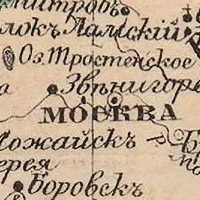 митровъ
локъ Ламскій
Оз. Тростенское
Звѣнигоро
МОСКВА
Можайскъ
ерея
Боровскъ